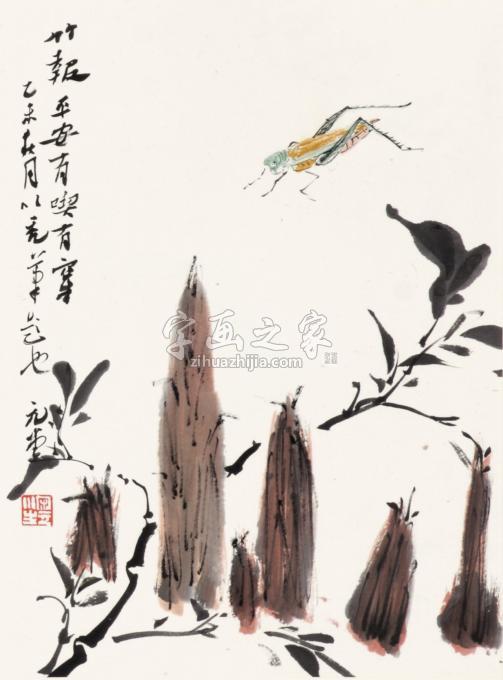 竹報平安有喫有穿
乙未秋月以禿筆题也
元堂
字画之家
zihuazhijia.com